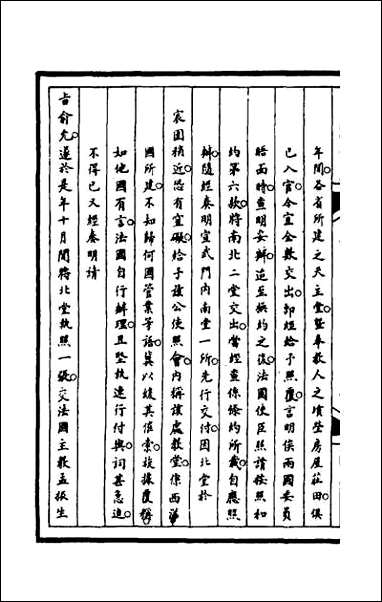 年間各省所建之天主堂暨奉教人之墳塋房屋莊田俱
已入官令宜全數交出卽經給予照覆言明俟兩國委員
晤面時查明妥辦迨至換約之後法國使臣照請按照和
約第六款將南北二堂交出當經查係條約所載自應照
辦隨經奏明宣武門內南堂一所先行交付因北堂於
宸園稍近恐有窒礙給予該公使照會內稱該處教堂係西洋
國所建不知歸何國管業等語冀以緩其催索旋據覆稱
如他國有言法國自行辦理且堅執速行付與詞甚急迫
不得已又經奏明請
旨俞允遂於是年十月間將北堂執照一張交法國主教孟振生